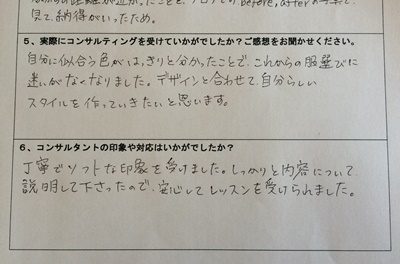 見て納得がいったため。
5、実際にコンサルティングを受けていかがでしたか？ご感想をお聞かせください。
自分に似合う色がはっきりと分かったことで、これからの服選びに
迷いがなくなりました。デザインと合わせて、自分らしい
スタイルを作っていきたいと思います。
6、コンサルタントの印象や対応はいかがでしたか？
丁寧でソフトな印象を受けました。しっかりと内容について
説明して下さったので、安心してレッスンを受けられました。